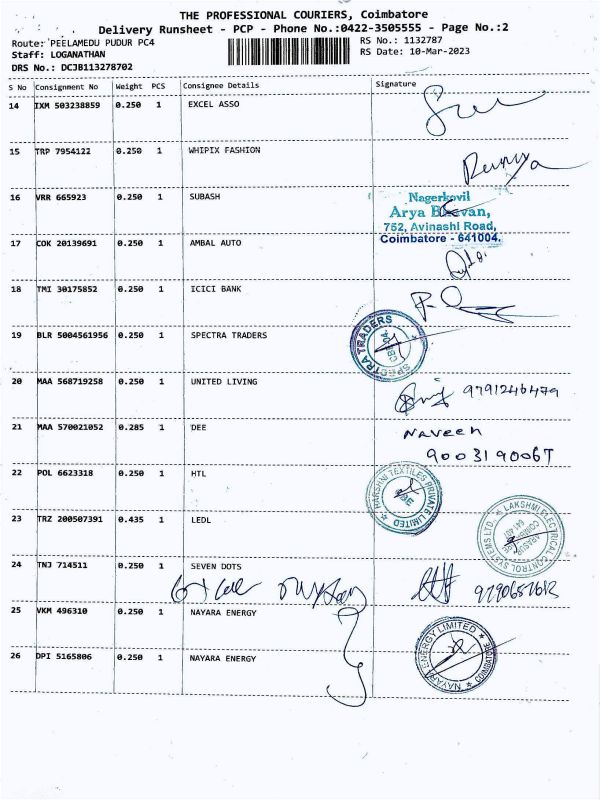 THE PROFESSIONAL COURIERS, Coimbatore
Delivery Runsheet - PCP - Phone No.:0422-3505555 - Page No.:2
Route: PEELAMEDU PUDUR PC4
RS No.: 1132787
Staff: LOGANATHAN
RS Date: 10-Mar-2023
DRS No.: DCJB113278702
S No Consignment No Weight PCS Consignee Details Signature
14 IXM 503238859 0.250 1 EXCEL ASSO
15 TRP 7954122 0.250 1 WHIPIX FASHION
16 VRR 665923 0.250 1 SUBASH
Nagerkovil
Arya Bhavan,
752, Avinashi Road,
Coimbatore - 641004.
17 COK 20139691 0.250 1 AMBAL AUTO
18 TMI 30175852 0.250 1 ICICI BANK
19 BLR 5004561956 0.250 1 SPECTRA TRADERS
SPECTRA TRADERS
20 MAA 568719258 0.250 1 UNITED LIVING
9791246479
21 MAA 570021052 0.285 1 DEE
Naveen
9003190067
22 POL 6623318 0.250 1 HTL
HARSHNI TEXTILES PRIVATE LIMITED
23 TRZ 200507391 0.435 1 LEDL
LAKSHMI ELECTRICAL CONTROL SYSTEMS LTD.
24 TNJ 714511 0.250 1 SEVEN DOTS
9790657612
25 VKM 496310 0.250 1 NAYARA ENERGY
26 DPI 5165806 0.250 1 NAYARA ENERGY
NAYARA ENERGY LIMITED
COIMBATORE